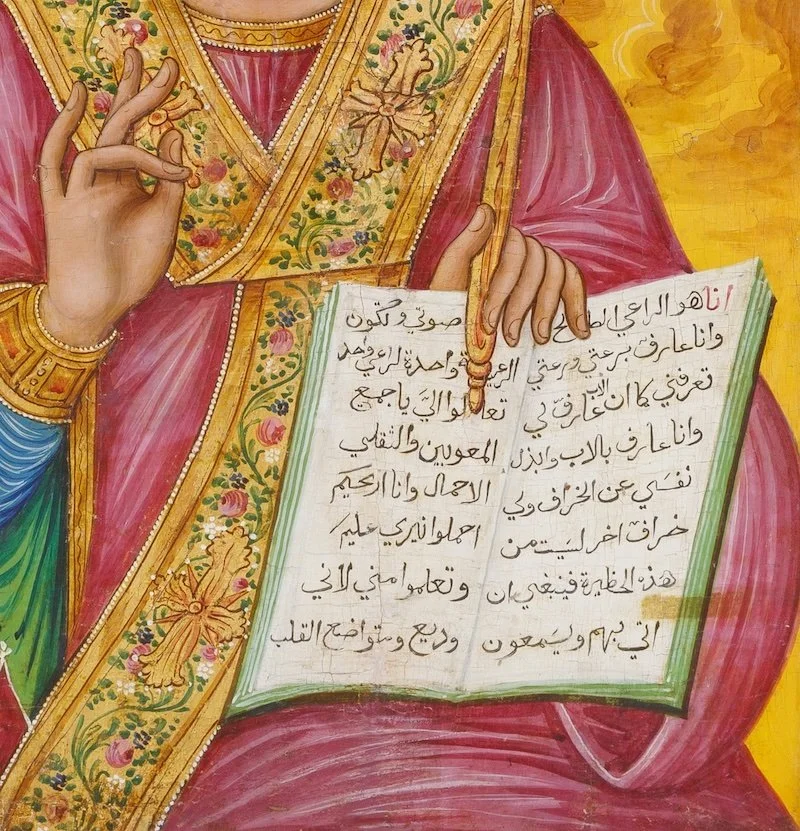 انا هو الراعي
وانا عارف برعتي ورعتي
تعرفني كما ان الاب عارف لي
وانا عارف بالاب وابذل
نفسي عن الخراف ولي
خراف اخر ليست من
هذه الحظيرة فينبغي ان
اتي بهم ويسمعون
صوتي وتكون
واحدة لراعي واحد
تعالوا اليَّ يا جميع
المعوبين والثقلي
الاحمال وانا اريحكم
احملوا نيري عليكم
وتعلموا مني لاني
وديع ومتواضع القلب